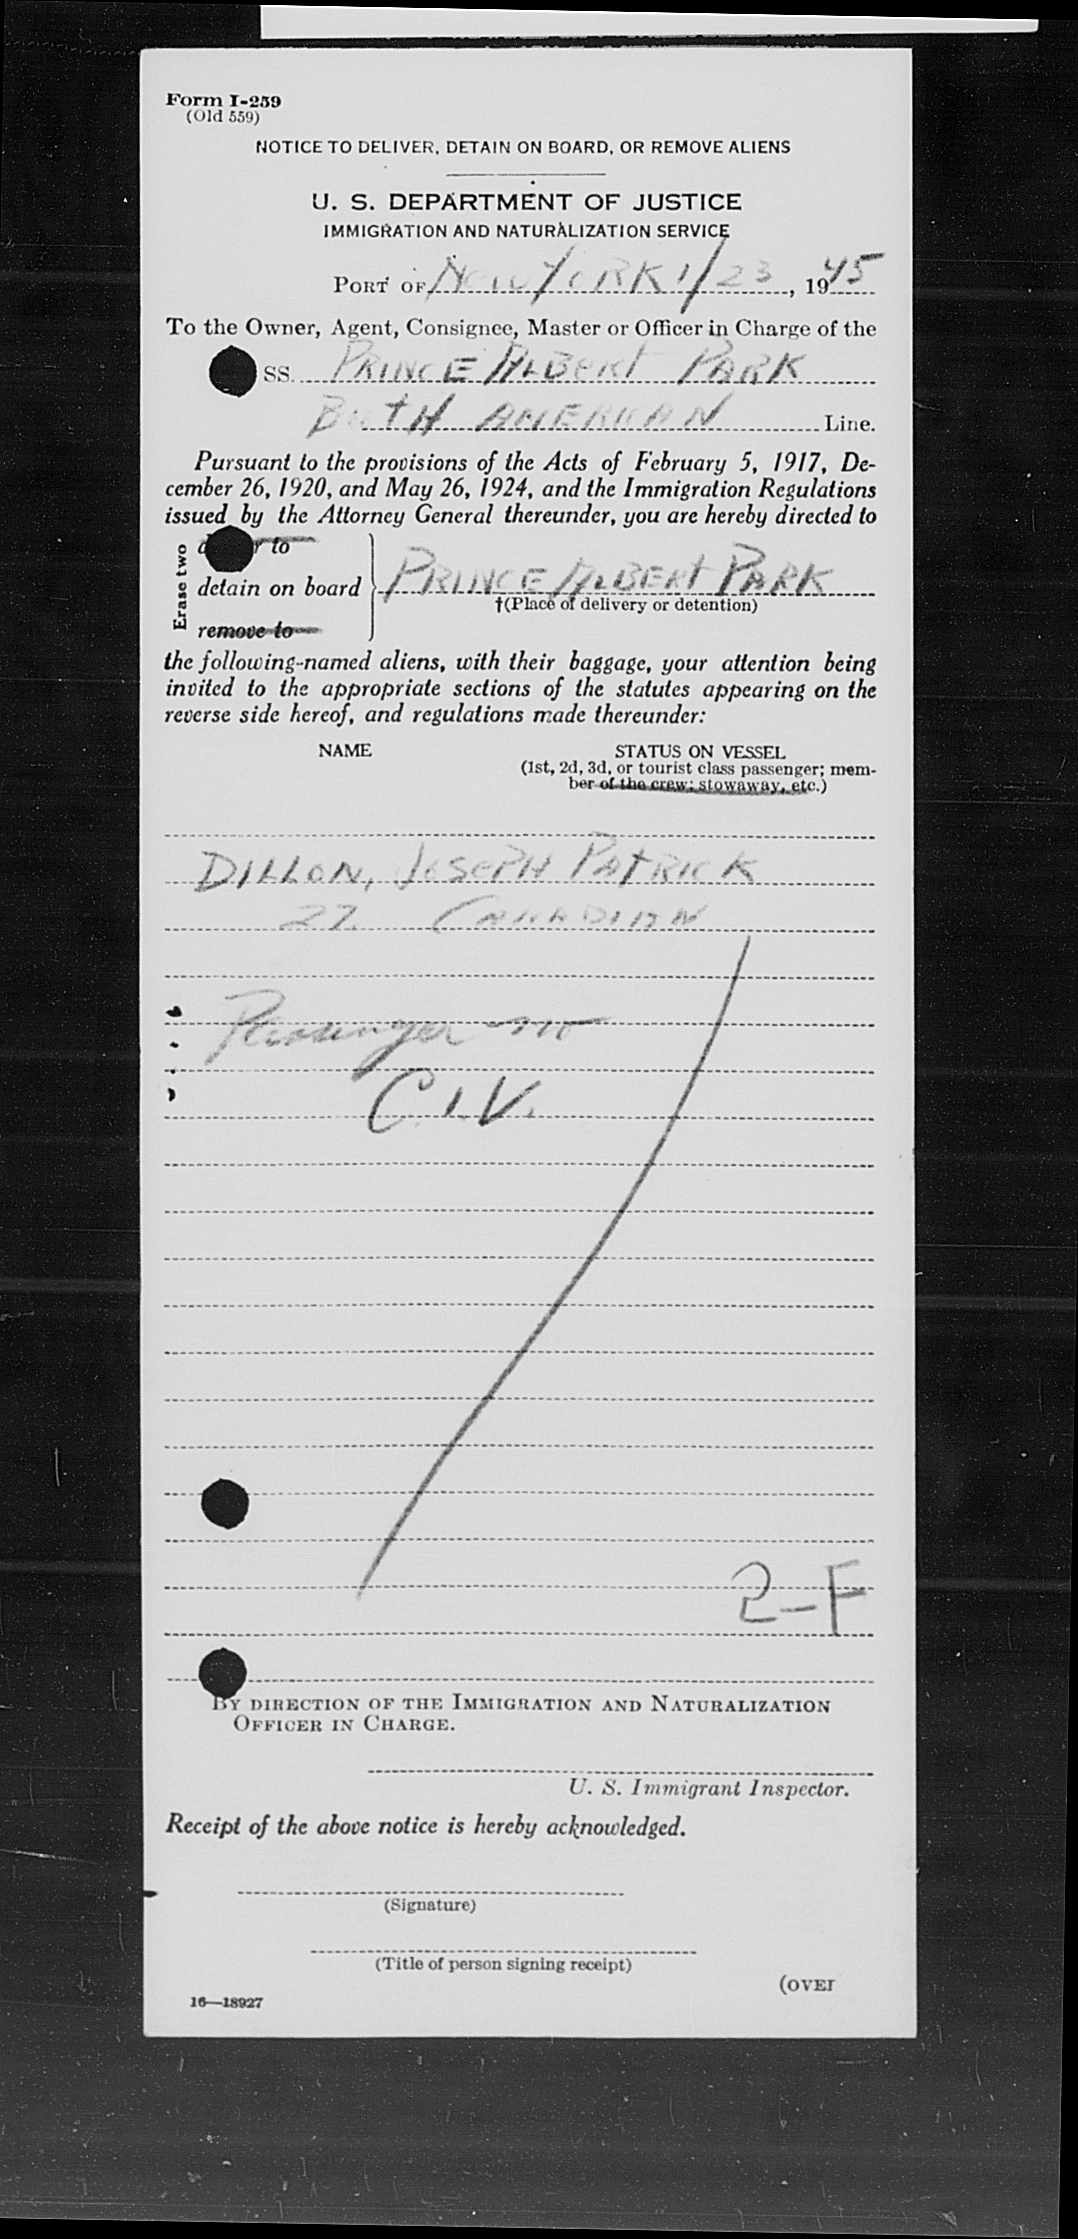 Form I-259
(Old 559)
NOTICE TO DELIVER, DETAIN ON BOARD, OR REMOVE ALIENS
U. S. DEPARTMENT OF JUSTICE
IMMIGRATION AND NATURALIZATION SERVICE
PORT OF New York 1/23, 1945
To the Owner, Agent, Consignee, Master or Officer in Charge of the
SS. PRINCE ALBERT PARK
AMERICAN Line.
Pursuant to the provisions of the Acts of February 5, 1917, De-
cember 26, 1920, and May 26, 1924, and the Immigration Regulations
issued by the Attorney General thereunder, you are hereby directed to
Erase two
to
detain on board PRINCE ALBERT PARK
†(Place of delivery or detention)
remove to
the following-named aliens, with their baggage, your attention being
invited to the appropriate sections of the statutes appearing on the
reverse side hereof, and regulations made thereunder:
NAME STATUS ON VESSEL
(1st, 2d, 3d, or tourist class passenger; mem-
ber of the crew; stowaway, etc.)
DILLON, JOSEPH PATRICK
27. CANADIAN
Passenger no
C.I.V.
2-F
BY DIRECTION OF THE IMMIGRATION AND NATURALIZATION
OFFICER IN CHARGE.
U. S. Immigrant Inspector.
Receipt of the above notice is hereby acknowledged.
(Signature)
(Title of person signing receipt)
(OVER
16—18927